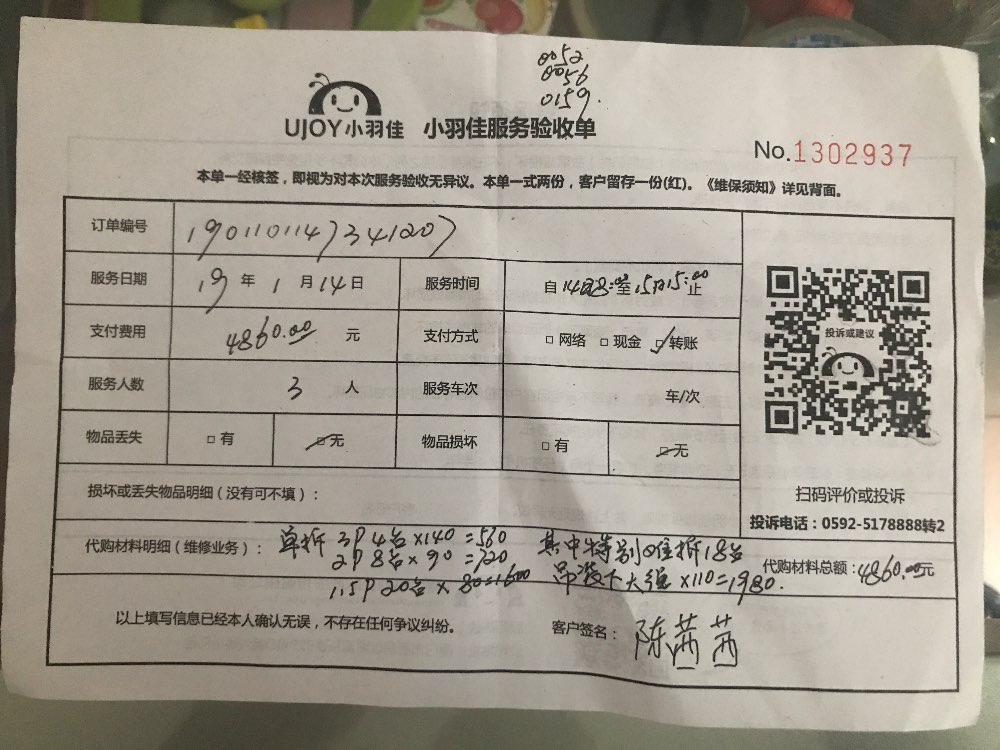 0052
0056
0159.
UJOY小羽佳 小羽佳服务验收单
No.1302937
本单一经核签，即视为对本次服务验收无异议。本单一式两份，客户留存一份(红)。《维保须知》详见背面。
订单编号 1901101147341207
服务日期 19年1月14日 服务时间 至15日15:00止
支付费用 4860.00 元 支付方式 □网络 □现金 ☑转账
服务人数 3 人 服务车次 车/次
物品丢失 □有 ☑无 物品损坏 □有 ☑无
投诉或建议
扫码评价或投诉
投诉电话：0592-5178888转2
损坏或丢失物品明细（没有可不填）：
代购材料明细（维修业务）： 单拆 3P 4台×140=560 其中特别难拆18台
2P 8台×90=720 ×110=1980.
1.5P 20台×80=1600
代购材料总额：4860.00元
以上填写信息已经本人确认无误，不存在任何争议纠纷。 客户签名：陈茜茜